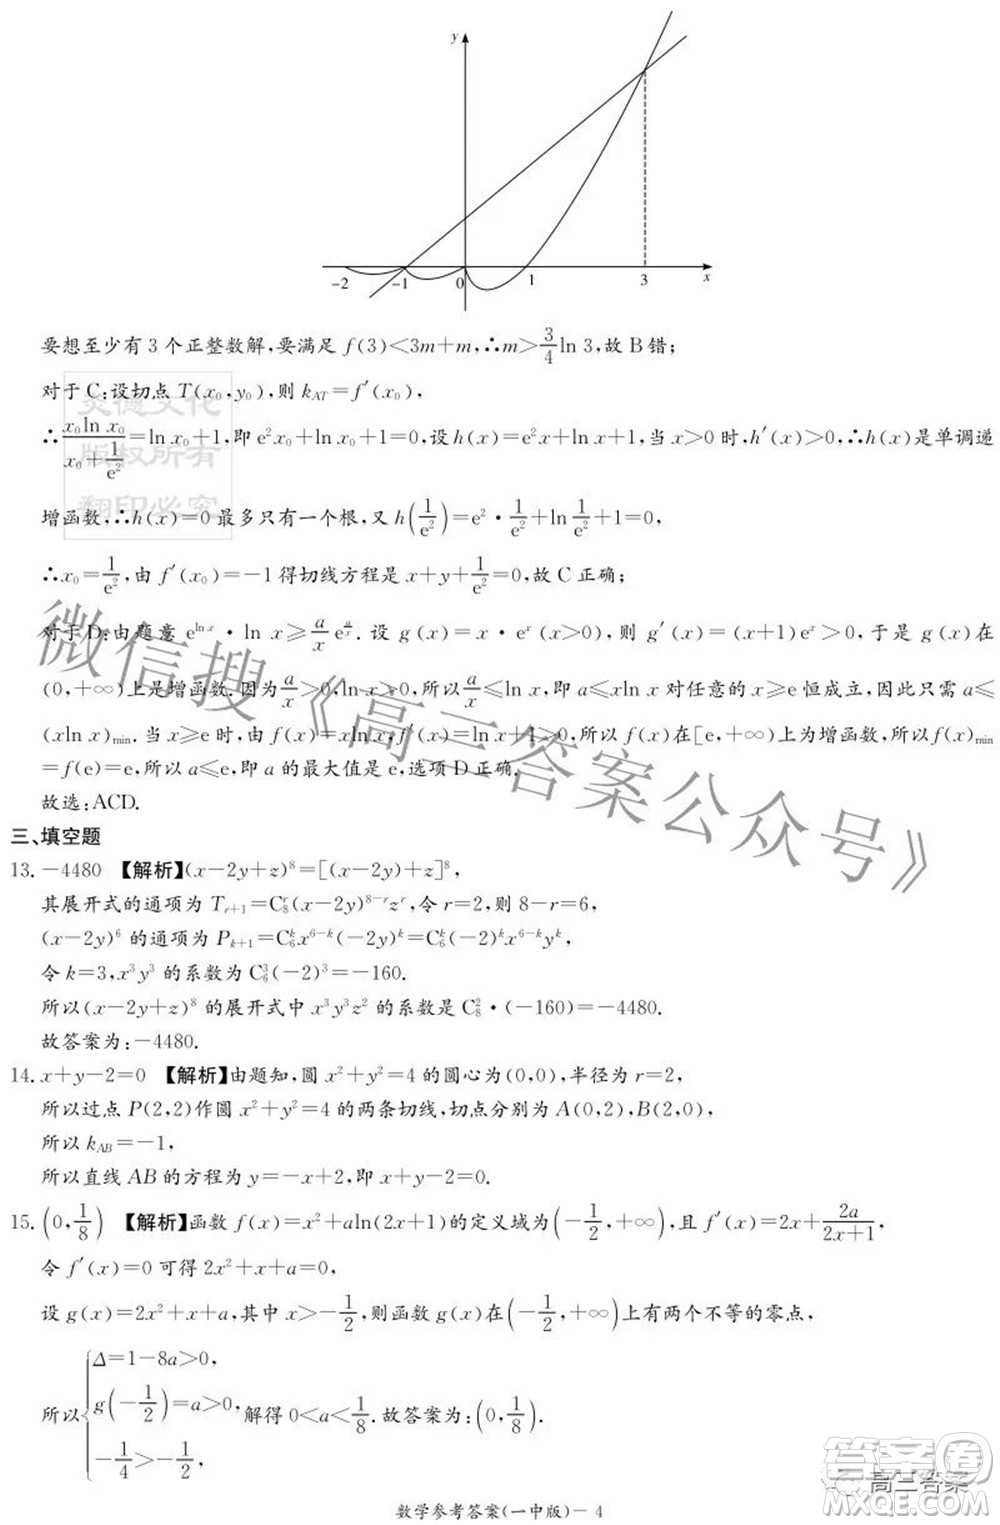 y
-2 -1 0 1 3 x
要想至少有 3 个正整数解,要满足 f(3)<3m+m,∴m>3/4 ln 3,故 B 错;
对于 C:设切点 T(x₀,y₀),则 k_AT=f′(x₀),
∴(x₀ln x₀)/(x₀+1/e²)=ln x₀+1,即 e²x₀+ln x₀+1=0,设 h(x)=e²x+ln x+1,当 x>0 时,h′(x)>0,∴h(x)是单调递
增函数,∴h(x)=0 最多只有一个根,又 h(1/e²)=e²·1/e²+ln 1/e²+1=0,
∴x₀=1/e²,由 f′(x₀)=-1 得切线方程是 x+y+1/e²=0,故 C 正确;
对于 D:由题意 e^(ln x)·ln x≥a/x e^(a/x). 设 g(x)=x·eˣ(x>0),则 g′(x)=(x+1)eˣ>0,于是 g(x)在
(0,+∞)上是增函数.因为a/x>0,ln x>0,所以a/x≤ln x,即 a≤xln x 对任意的 x≥e 恒成立,因此只需 a≤
(xln x)min.当 x≥e 时,由 f(x)=xln x,f′(x)=ln x+1>0,所以 f(x)在[e,+∞)上为增函数,所以 f(x)min
=f(e)=e,所以 a≤e,即 a 的最大值是 e,选项 D 正确.
故选:ACD.
三、填空题
13.-4480 【解析】(x-2y+z)⁸=[(x-2y)+z]⁸,
其展开式的通项为 T_(r+1)=C₈ʳ(x-2y)⁸⁻ʳzʳ,令 r=2,则 8-r=6,
(x-2y)⁶ 的通项为 P_(k+1)=C₆ᵏx⁶⁻ᵏ(-2y)ᵏ=C₆ᵏ(-2)ᵏx⁶⁻ᵏyᵏ,
令 k=3,x³y³ 的系数为 C₆³(-2)³=-160.
所以(x-2y+z)⁸ 的展开式中 x³y³z² 的系数是 C₈²·(-160)=-4480.
故答案为:-4480.
14. x+y-2=0 【解析】由题知,圆 x²+y²=4 的圆心为(0,0),半径为 r=2,
所以过点 P(2,2)作圆 x²+y²=4 的两条切线,切点分别为 A(0,2),B(2,0),
所以 k_AB=-1,
所以直线 AB 的方程为 y=-x+2,即 x+y-2=0.
15. (0,1/8) 【解析】函数 f(x)=x²+aln(2x+1)的定义域为(-1/2,+∞),且 f′(x)=2x+2a/(2x+1),
令 f′(x)=0 可得 2x²+x+a=0,
设 g(x)=2x²+x+a,其中 x>-1/2,则函数 g(x)在(-1/2,+∞)上有两个不等的零点,
所以{Δ=1-8a>0,
g(-1/2)=a>0,解得 0<a<1/8.故答案为:(0,1/8).
-1/4>-1/2,
数学参考答案(一中版)- 4
炎德文化
版权所有
翻印必究
微信搜《高三答案公众号》
高三答案
答案圈
MXQE.COM